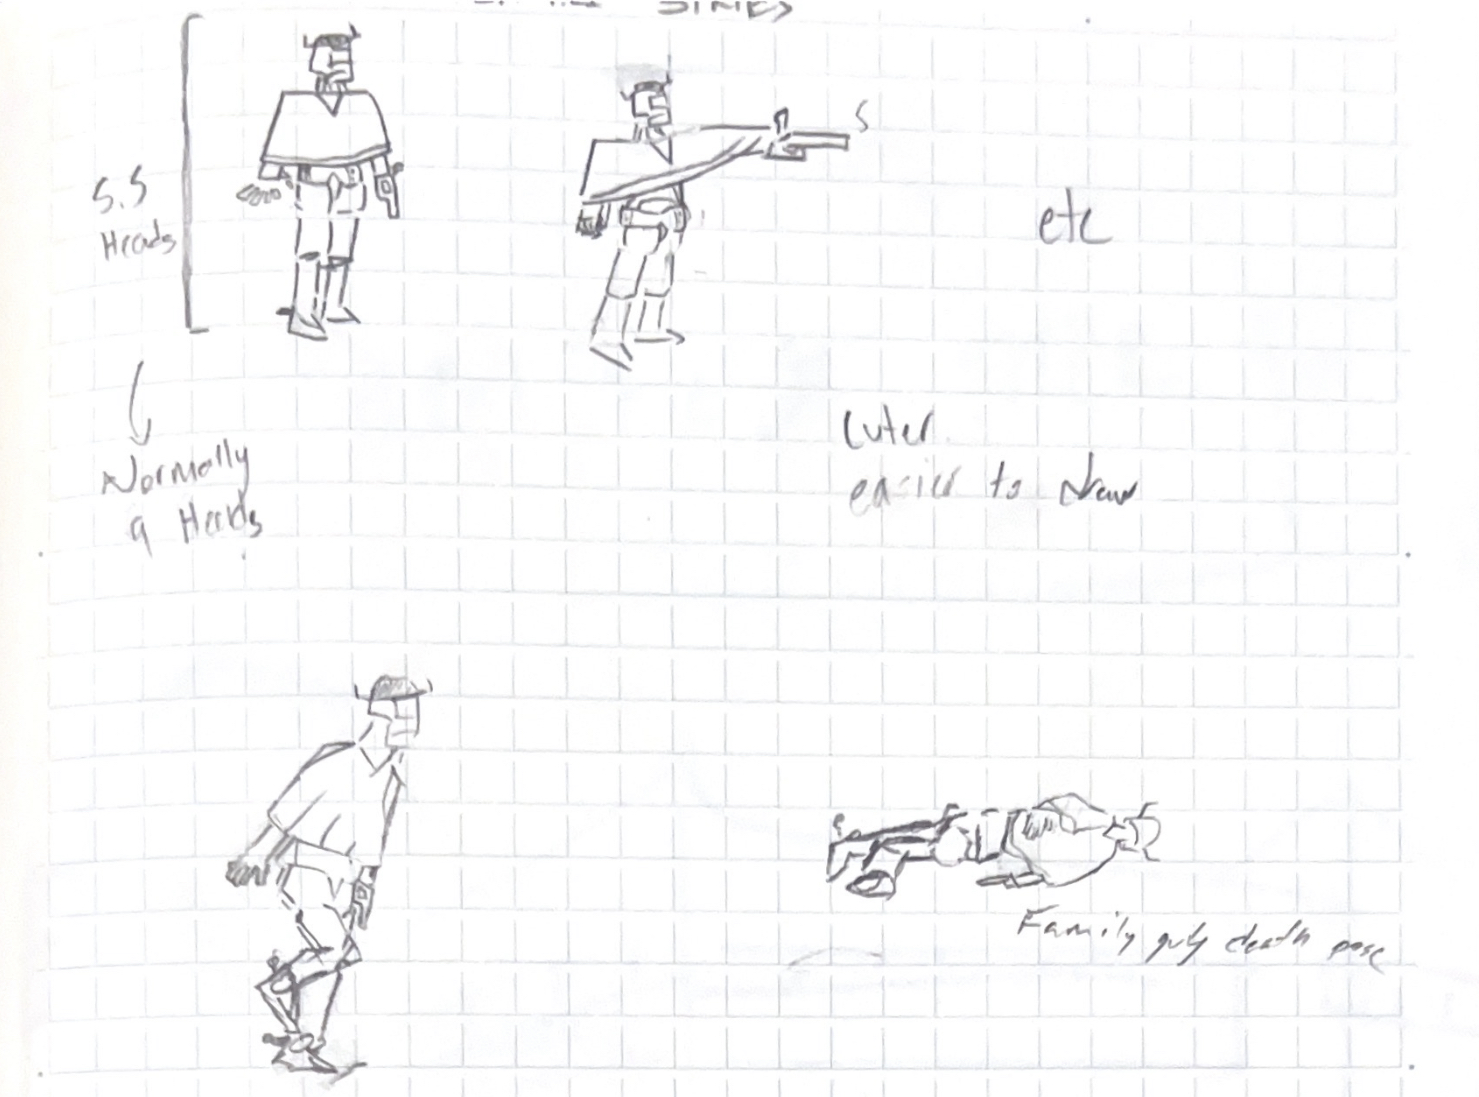 5.5
Heads
etc
Normally
9 Heads
Cuter
easier to draw
Family guy death pose